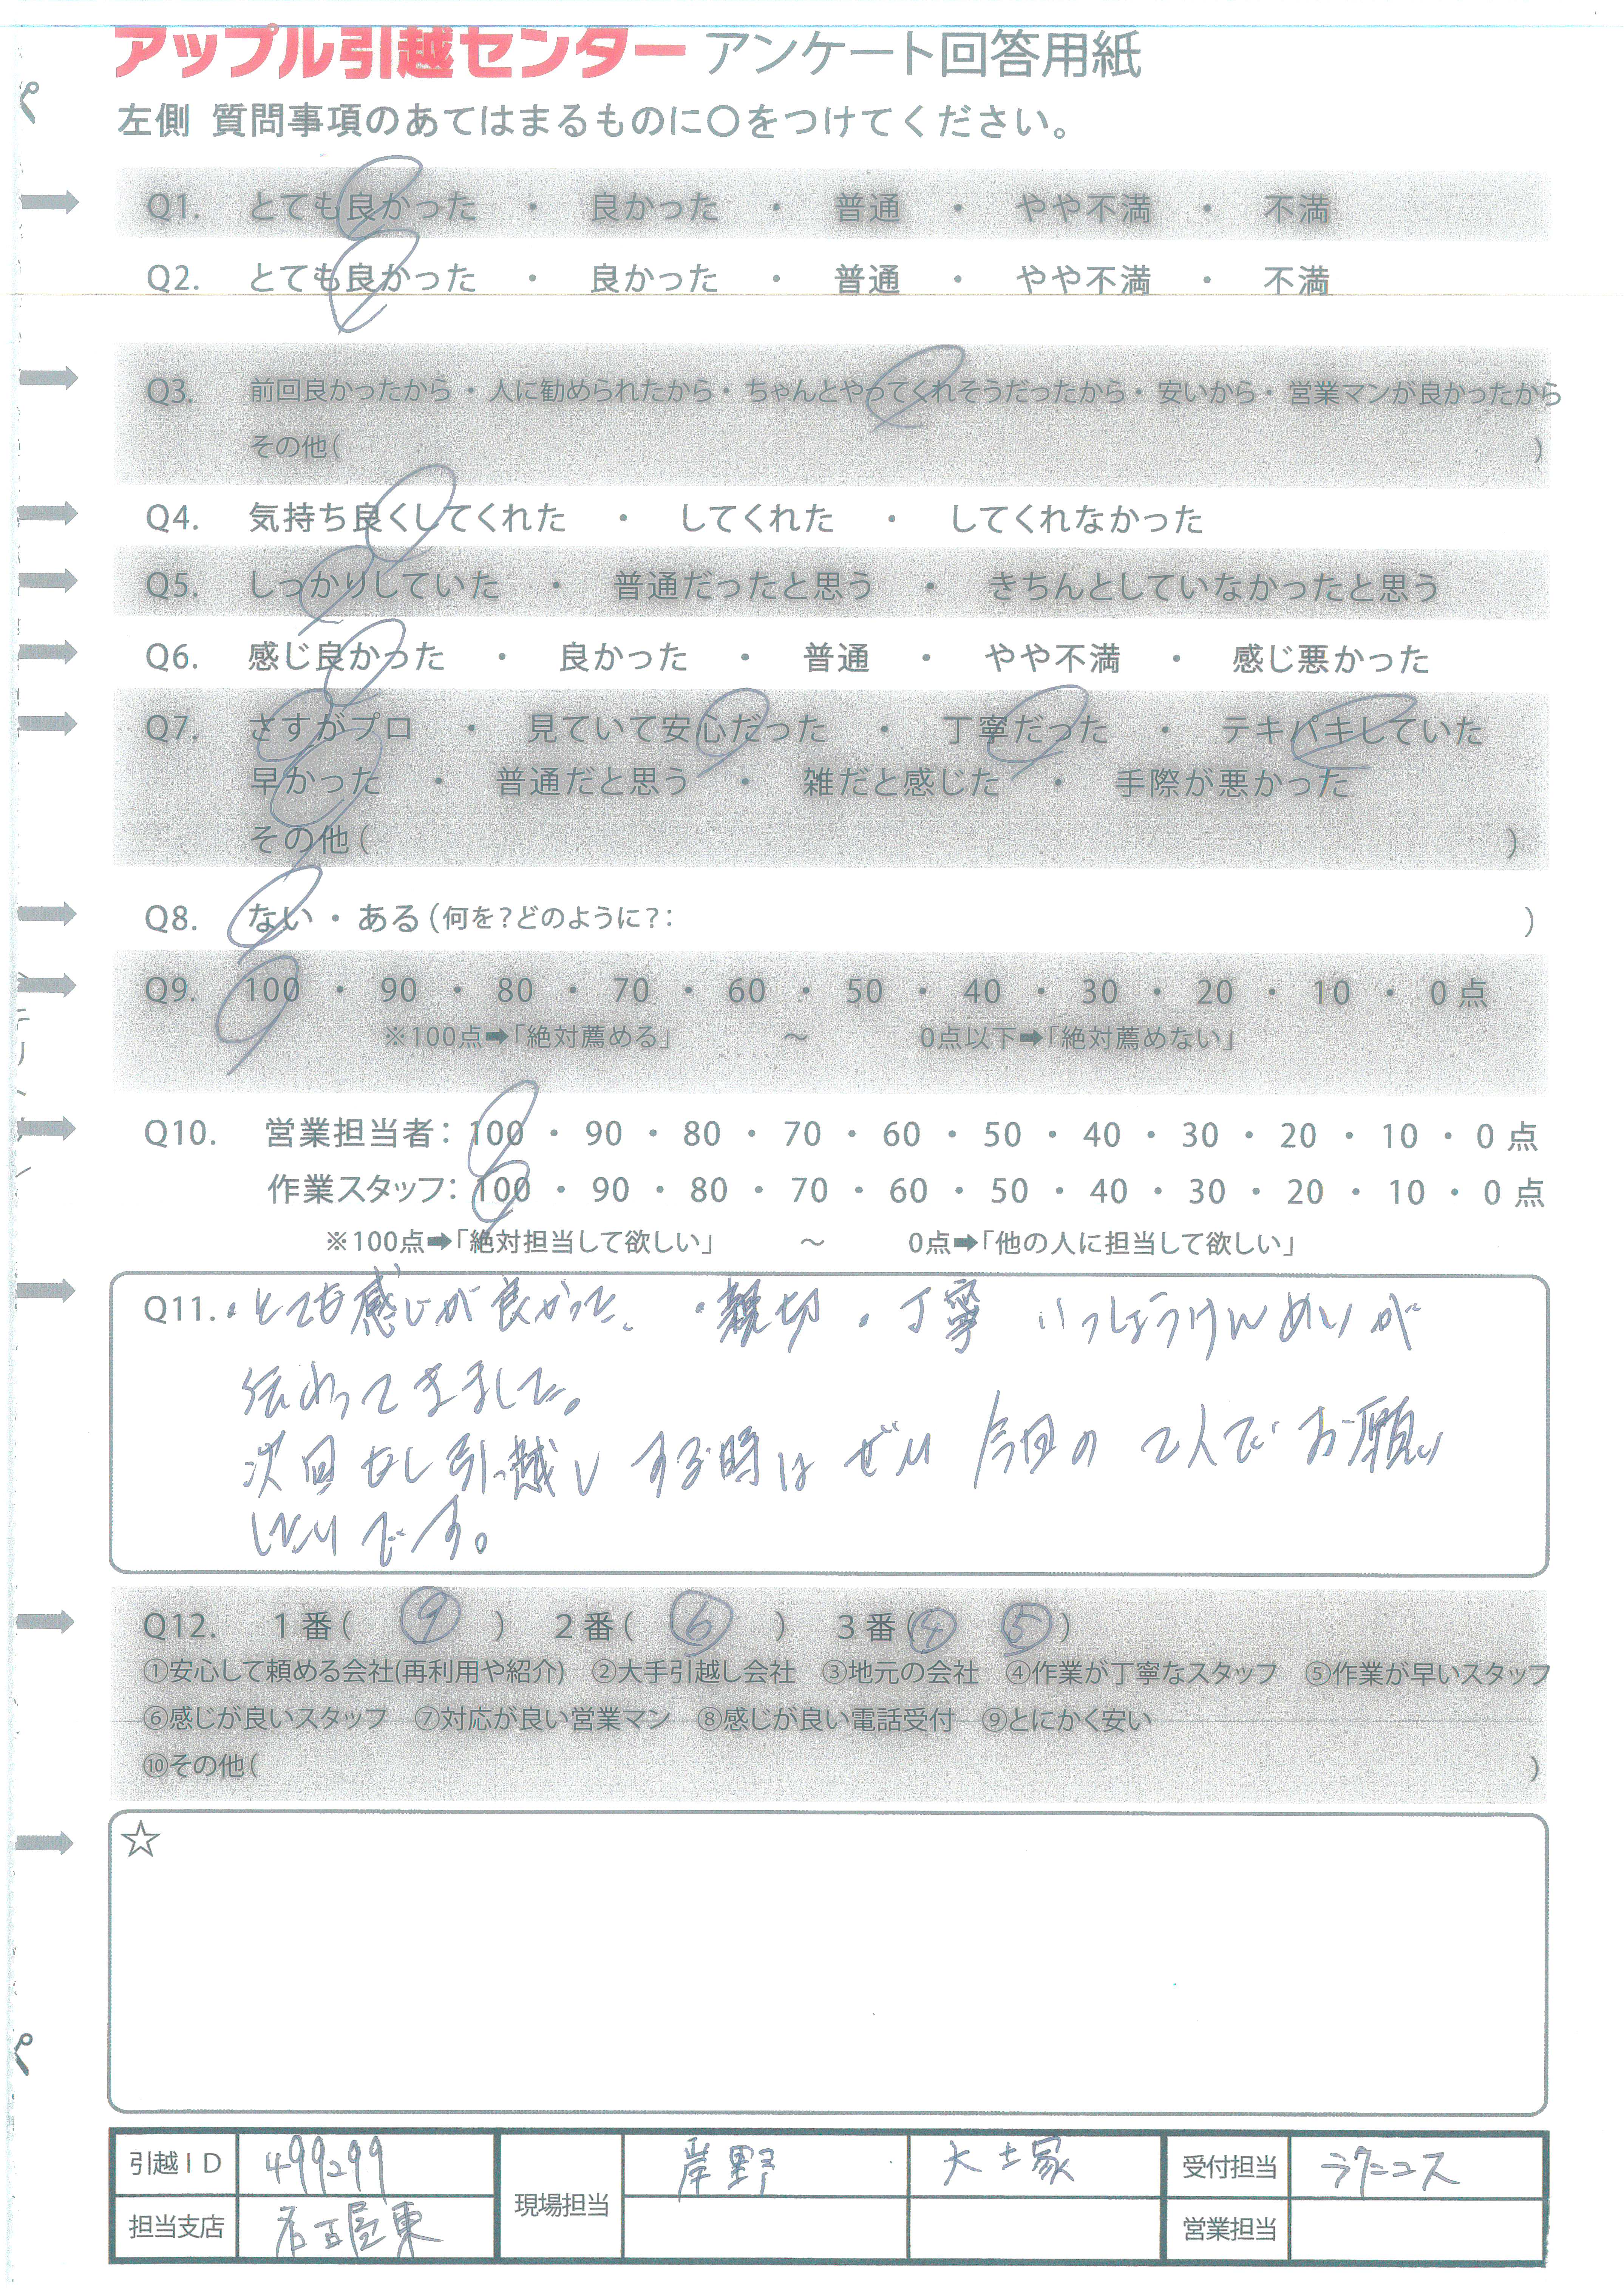 アップル引越センター アンケート回答用紙
左側 質問事項のあてはまるものに○をつけてください。
Q1. とても良かった ・ 良かった ・ 普通 ・ やや不満 ・ 不満
Q2. とても良かった ・ 良かった ・ 普通 ・ やや不満 ・ 不満
Q3. 前回良かったから ・ 人に勧められたから ・ ちゃんとやってくれそうだったから ・ 安いから ・ 営業マンが良かったから
その他( )
Q4. 気持ち良くしてくれた ・ してくれた ・ してくれなかった
Q5. しっかりしていた ・ 普通だったと思う ・ きちんとしていなかったと思う
Q6. 感じ良かった ・ 良かった ・ 普通 ・ やや不満 ・ 感じ悪かった
Q7. さすがプロ ・ 見ていて安心だった ・ 丁寧だった ・ テキパキしていた
早かった ・ 普通だと思う ・ 雑だと感じた ・ 手際が悪かった
その他( )
Q8. ない ・ ある (何を?どのように?: )
Q9. 100 ・ 90 ・ 80 ・ 70 ・ 60 ・ 50 ・ 40 ・ 30 ・ 20 ・ 10 ・ 0 点
※100点➡「絶対薦める」 ～ 0点以下➡「絶対薦めない」
Q10. 営業担当者: 100 ・ 90 ・ 80 ・ 70 ・ 60 ・ 50 ・ 40 ・ 30 ・ 20 ・ 10 ・ 0 点
作業スタッフ: 100 ・ 90 ・ 80 ・ 70 ・ 60 ・ 50 ・ 40 ・ 30 ・ 20 ・ 10 ・ 0 点
※100点➡「絶対担当して欲しい」 ～ 0点➡「他の人に担当して欲しい」
Q11. ・とても感じが良かった、 ・親切 ・丁寧 いっしょうけんめいが
伝わってきました。
次回もし引っ越しする時はぜひ今回の2人でお願い
したいです。
Q12. 1番( ⑨ ) 2番( ⑥ ) 3番( ④ ⑤ )
①安心して頼める会社(再利用や紹介) ②大手引越し会社 ③地元の会社 ④作業が丁寧なスタッフ ⑤作業が早いスタッフ
⑥感じが良いスタッフ ⑦対応が良い営業マン ⑧感じが良い電話受付 ⑨とにかく安い
⑩その他( )
☆
引越ID 499299 現場担当 岸野 大士家 受付担当
担当支店 名古屋東 営業担当